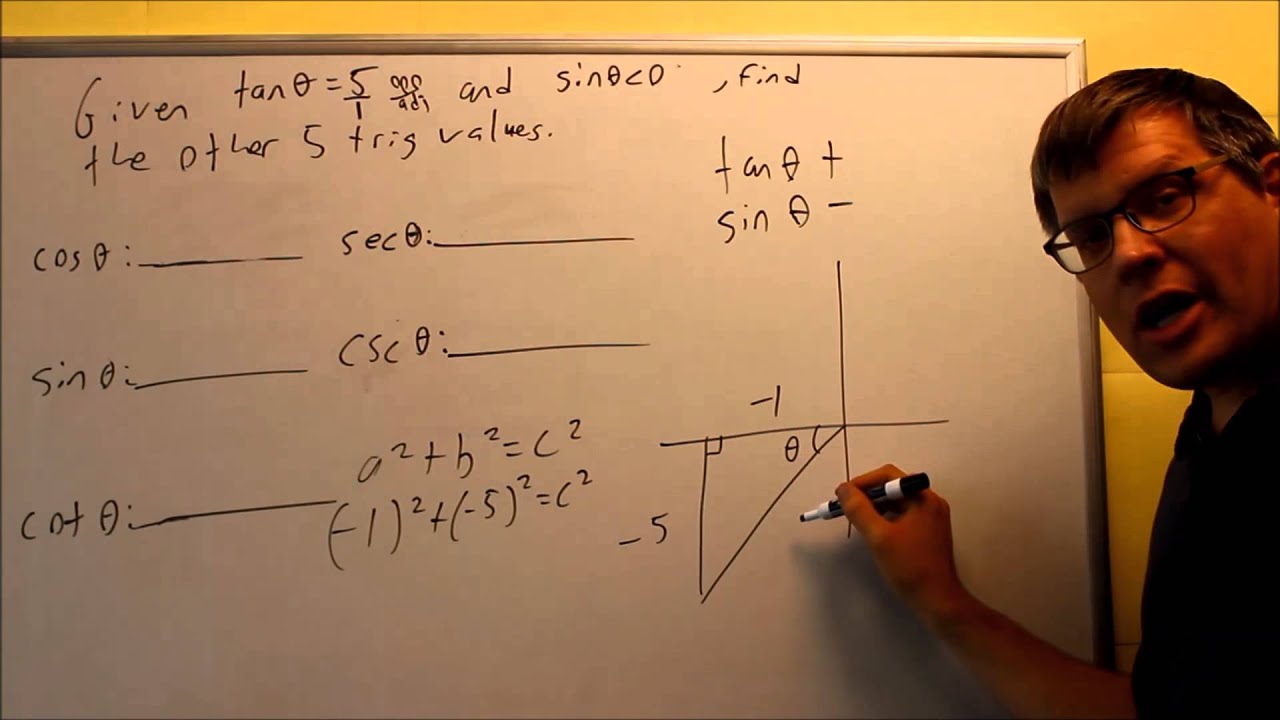 Given tanθ = 5/1 opp/adj and sinθ<0 , find
the other 5 trig values.
tanθ +
sinθ -
cosθ:
secθ:
sinθ:
cscθ:
cotθ:
a²+b²=c²
(-1)²+(-5)²=c²
-1
θ
-5